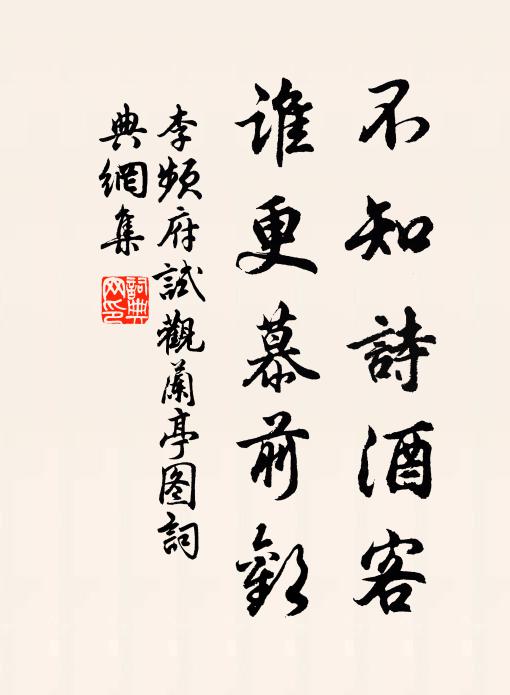 不知詩酒客
誰更慕前歡
李頻府試觀蘭亭图詞
典網集
詞典
网印